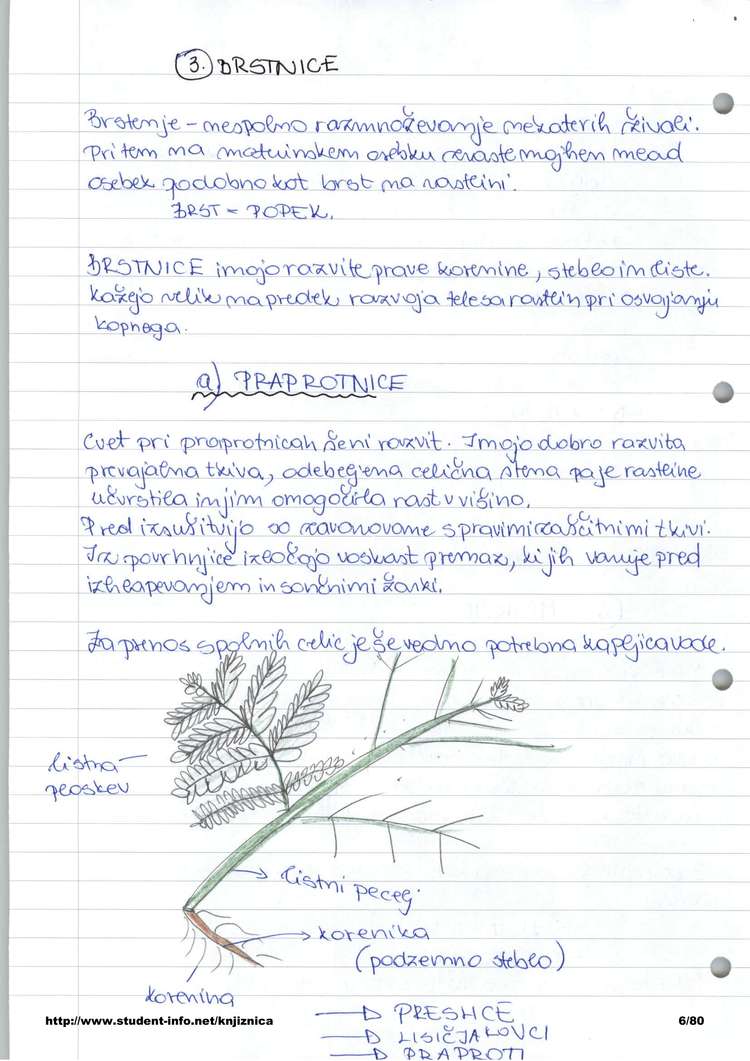 3. BRSTNICE
Brstenje – nespolno razmnoževanje nekaterih živali.
Pri tem na materinskem osebku zraste majhen mlad
osebek podobno kot brst na rastlini.
BRST = POPEK.
BRSTNICE imajo razvite prave korenine, steblo in liste.
Kažejo velik napredek razvoja telesa rastlin pri osvajanju
kopnega.
a) PRAPROTNICE
Cvet pri praprotnicah še ni razvit. Imajo dobro razvita
prevajalna tkiva, odebeljena celična stena pa je rastline
učvrstila in jim omogočila rast v višino.
Pred izsušitvijo so zavarovane s pravimi zaščitnimi tkivi.
Iz povrhnjice izločajo voskast premaz, ki jih varuje pred
izhlapevanjem in sončnimi žarki.
Za prenos spolnih celic je še vedno potrebna kapljica vode.
listna
ploskev
listni pecelj
korenika
(podzemno steblo)
korenina
PRESLICE
LISIČJAKOVCI
PRAPROTI
http://www.student-info.net/knjiznica
6/80